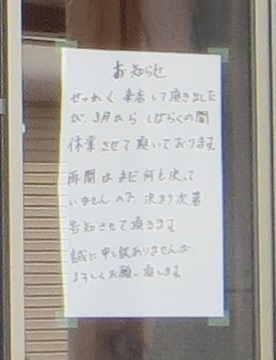 お知らせ
せっかく来店して頂きました
が、3月からしばらくの間
休業させて頂いております。
再開はまだ何も決って
いませんので決まり次第
告知させて頂きます。
誠に申し訳ありませんが
よろしくお願い致します。